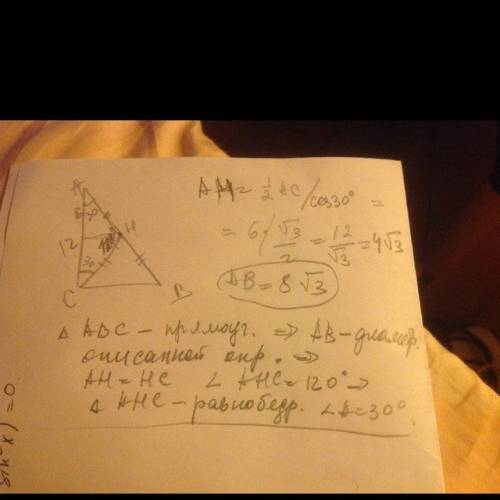 A
12
30
H
C
B
AH = 1/2 AC / cos30° =
= 6 / √3/2 = 12/√3 = 4√3
AB = 8√3
△ ABC – прямоуг. => AB – диаметр.
описанной окр. =>
AH = HC ∠ AHC = 120° =>
△ AHC – равнобедр. ∠A = 30°
x) = 0